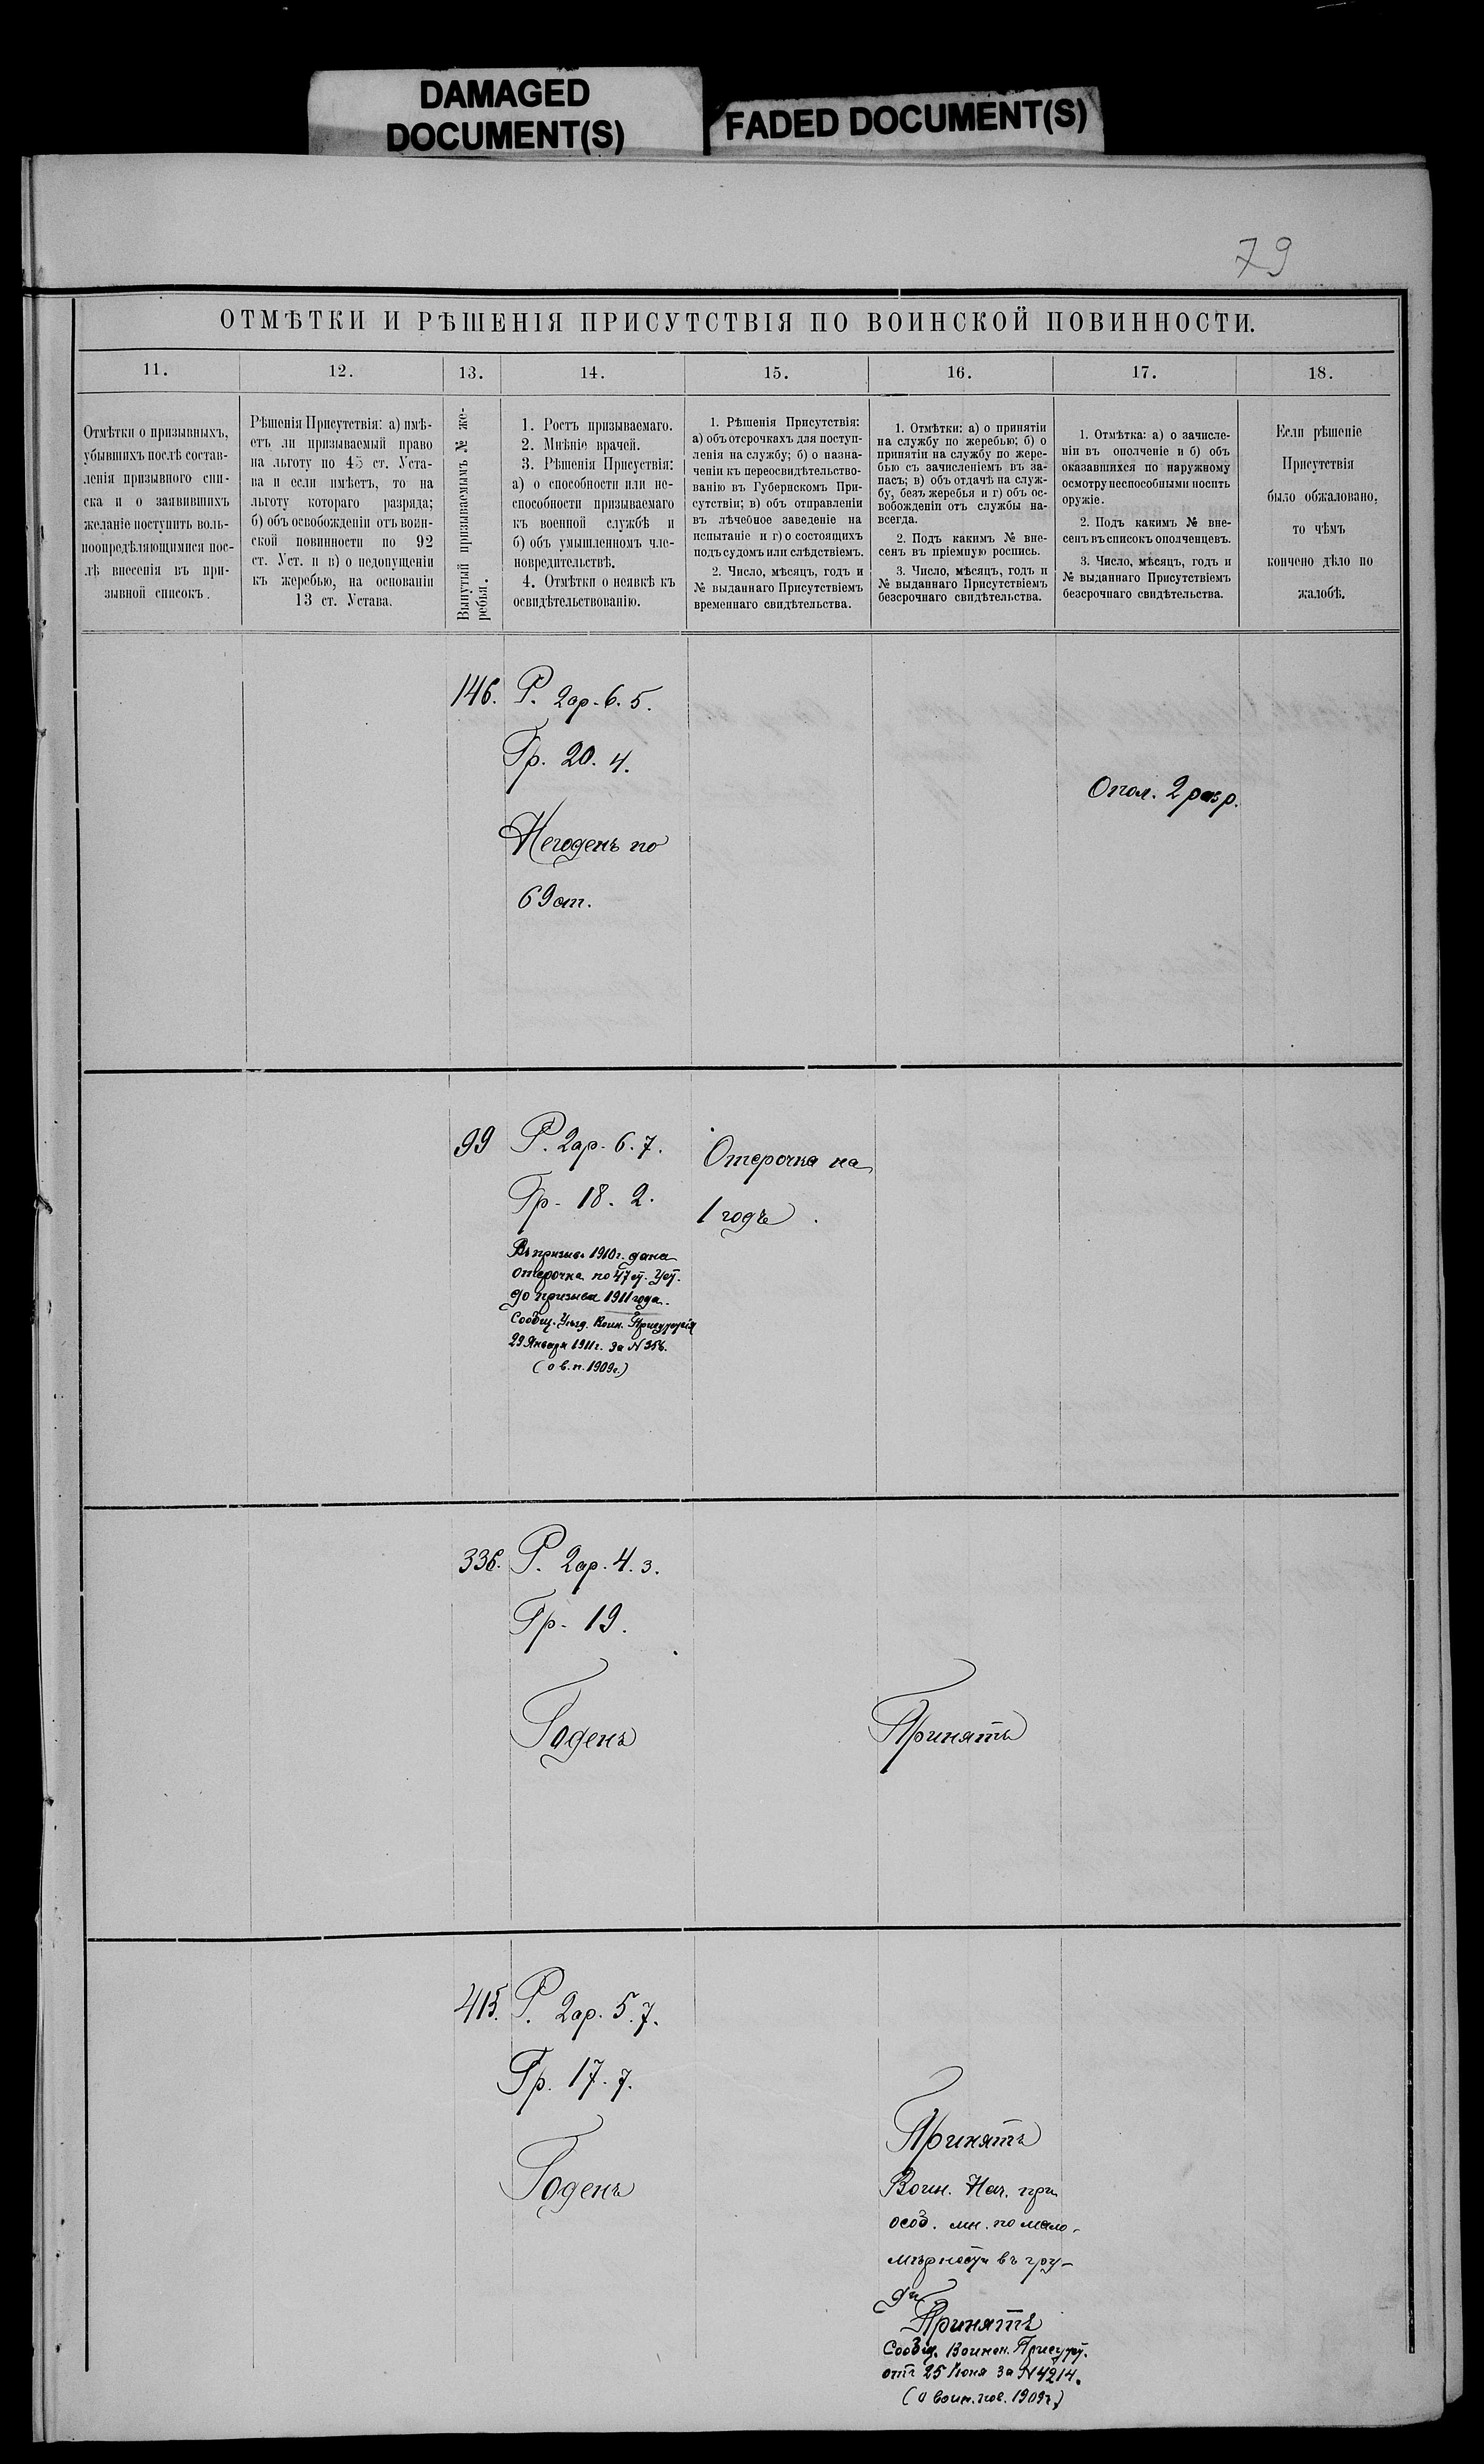 DAMAGED
DOCUMENT(S)
FADED DOCUMENT(S)
79
ОТМѢТКИ И РѢШЕНІЯ ПРИСУТСТВІЯ ПО ВОИНСКОЙ ПОВИННОСТИ.
11.
12.
13.
14.
15.
16.
17.
18.
Отмѣтки о призывныхъ,
убывшихъ послѣ состав-
ленія призывного спи-
ска и о заявившихъ
желаніе поступить воль-
ноопредѣляющимися пос-
лѣ внесенія въ при-
зывной списокъ.
Рѣшенія Присутствія: а) имѣ-
етъ ли призываемый право
на льготу по 45 ст. Уста-
ва и если имѣетъ, то на
льготу котораго разряда;
б) объ освобожденіи отъ воин-
ской повинности по 92
ст. Уст. и в) о недопущеніи
къ жеребью, на основаніи
13 ст. Устава.
Вынутый призываемымъ № же-
ребья.
1. Ростъ призываемаго.
2. Мнѣніе врачей.
3. Рѣшенія Присуствія:
а) о способности или не-
способности призываемаго
къ военной службѣ и
б) объ умышленномъ чле-
новредительствѣ.
4. Отмѣтки о неявкѣ къ
освидѣтельствованію.
1. Рѣшенія Присутствія:
а) объ отсрочкахъ для поступ-
ленія на службу; б) о назна-
ченіи къ переосвидѣтельство-
ванію въ Губернскомъ При-
сутствіи; в) объ отправленіи
въ лѣчебное заведеніе на
испытаніе и г) о состоящихъ
подъ судомъ или слѣдствіемъ.
2. Число, мѣсяцъ, годъ и
№ выданнаго Присутствіемъ
временнаго свидѣтельства.
1. Отмѣтки: а) о принятіи
на службу по жеребью; б) о
принятіи на службу по жере-
бью съ зачисленіемъ въ за-
пасъ; в) объ отдачѣ на служ-
бу, безъ жеребья и г) объ ос-
вобожденіи отъ службы на-
всегда.
2. Подъ какимъ № вне-
сенъ въ пріемную роспись.
3. Число, мѣсяцъ, годъ и
№ выданнаго Присутствіемъ
безсрочнаго свидѣтельства.
1. Отмѣтка: а) о зачисле-
ніи въ ополченіе и б) объ
оказавшихся по наружному
осмотру неспособными носить
оружіе.
2. Подъ какимъ № вне-
сенъ въ списокъ ополченцевъ.
3. Число, мѣсяцъ, годъ и
№ выданнаго Присутствіемъ
безсрочнаго свидѣтельства.
Если рѣшеніе
Присутствія
было обжаловано,
то чѣмъ
кончено дѣло по
жалобѣ.
146. Р. 2ар. 6. 5.
Гр. 20. 4.
Негоденъ по
69 ст.
Опол. 2 разр.
99 Р. 2ар. 6. 7.
Гр. 18. 2.
Въ призыв. 1910 г. дана
отсрочка по 47 ст. Уст.
до призыва 1911 года.
Сообщ. Уѣзд. Воин. Присутствія
29 Января 1911 г. за № 356.
(о в. п. 1909 г.)
Отсрочка на
1 годъ.
336. Р. 2ар. 4. 3.
Гр. 19.
Годенъ
Принятъ
415. Р. 2ар. 5. 7.
Гр. 17. 7.
Годенъ
Принятъ
Воин. Нач. при
особ. мн. по мало-
мѣрности въ гру-
ди
Принятъ
Сообщ. Воинск. Присутст.
отъ 25 Юня за № 4214.
(о воин. пов. 1909 г.)